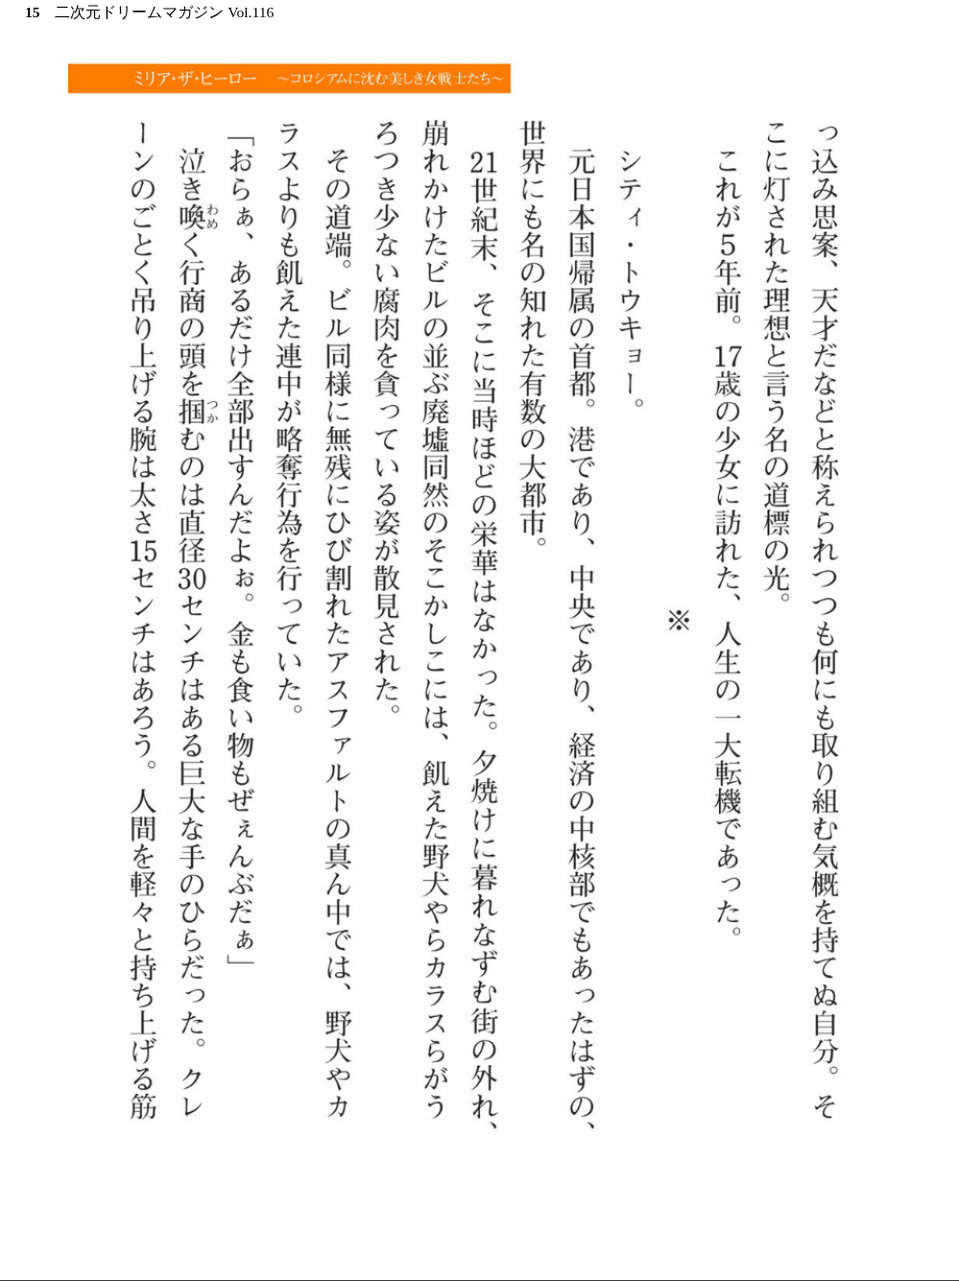 15 二次元ドリームマガジン Vol.116
ミリア・ザ・ヒーロー ～コロシアムに沈む美しき女戦士たち～
っ込み思案、天才だなどと称えられつつも何にも取り組む気概を持てぬ自分。そ
こに灯された理想と言う名の道標の光。
これが5年前。17歳の少女に訪れた、人生の一大転機であった。
※
シティ・トウキョー。
元日本国帰属の首都。港であり、中央であり、経済の中核部でもあったはずの、
世界にも名の知れた有数の大都市。
21世紀末、そこに当時ほどの栄華はなかった。夕焼けに暮れなずむ街の外れ、
崩れかけたビルの並ぶ廃墟同然のそこかしこには、飢えた野犬やらカラスらがう
ろつき少ない腐肉を貪っている姿が散見された。
その道端。ビル同様に無残にひび割れたアスファルトの真ん中では、野犬やカ
ラスよりも飢えた連中が略奪行為を行っていた。
「おらぁ、あるだけ全部出すんだよぉ。金も食い物もぜぇんぶだぁ」
泣き喚く行商の頭を掴むのは直径30センチはある巨大な手のひらだった。クレ
ーンのごとく吊り上げる腕は太さ15センチはあろう。人間を軽々と持ち上げる筋